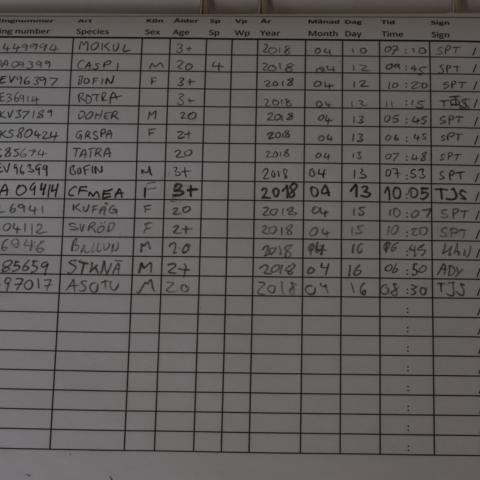 Art Kön Ålder Sp Vp År Månad Dag Tid Sign
Species Sex Age Sp Wp Year Month Day Time Sign
449994 MOKUL 3+ 2018 04 10 07:10 SPT
A09399 CASPI M 20 4 2018 04 12 09:45 SPT
EV96397 BOFIN F 3+ 2018 04 12 10:20 SPT
E36914 3+ 2018 04 12 11:15 TJS
KV37189 DOHER M 20 2018 04 13 05:45 SPT
KS80424 GRSPA F 2+ 2018 04 13 06:45 SPT
S85674 TATRA 20 2018 04 13 07:48 SPT
EV96399 BOFIN M 3+ 2018 04 13 07:53 SPT
A09414 CFMEA F 3+ 2018 04 13 10:05 TJS
6941 KUFÅG F 20 2018 04 15 10:07 SPT
04112 SVRÖD F 2+ 2018 04 15 10:20 SPT
6946 M 20 2018 04 16 06:45
85659 STKNÄ M 2+ 2018 04 16 06:50 ADY
97017 ASOTU M 20 2018 04 16 08:30 TJS